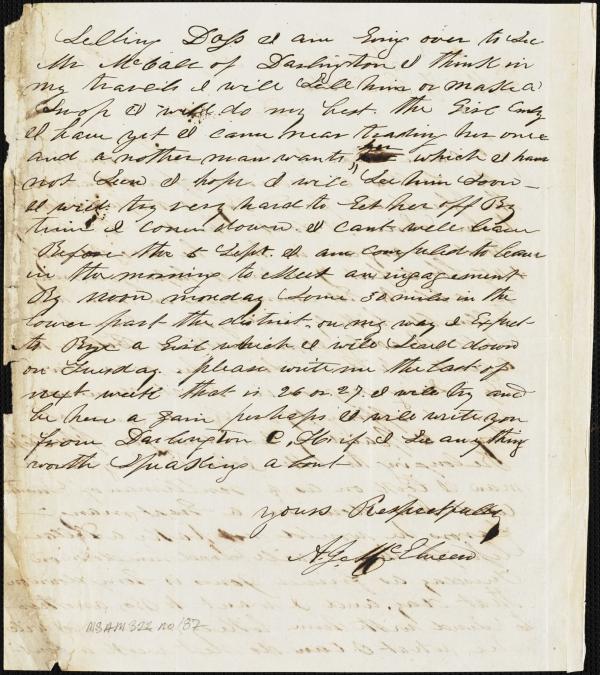 Selling Dogs I am Going over to See
Mr McCall of Darlington I think in
my travels I will Sell him or make a
Swop I will do my best. the Girl Emly
I have yet I came near trading her once
and a nother man wants her which I have
not Seen I hope I will See him Soon —
I will try very hard to Get her off By
time I come down. I cant well leave
Before the 5 Sept. I am compelled to leave
in the morning to Meet an ingagement
By noon monday Some 30 miles in the
lower part the district. on my way I Expect
to Bye a Girl which I will Send down
on Tuesday. please write me the last of
next week that is 26 or 27 I will try and
be here a gain perhaps I will write you
from Darlington C, H. if I See any thing
worth Speaking a bout
yours Respectfully
A J McElveen
MS AM 322 no 137